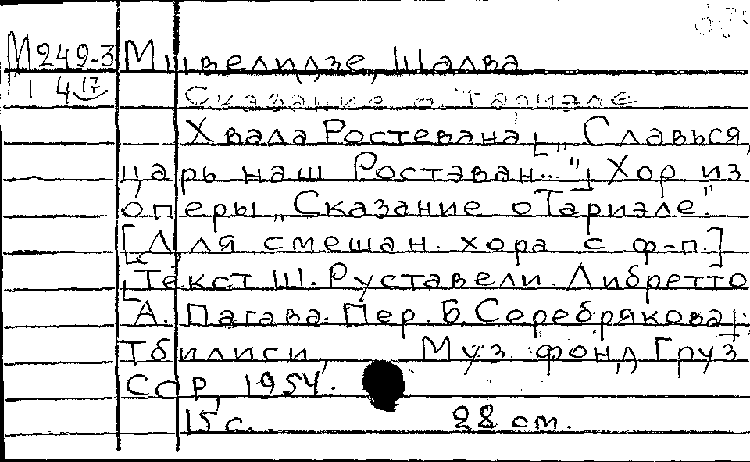 М249-3 Мшвелидзе, Шалва
1 417 Сказание о Тариэле
Хвала Ростевана ["Славься,
царь наш Роставан..."] Хор из
оперы "Сказание о Тариэле".
[Для смешан. хора с ф-п.]
[Текст Ш. Руставели. Либретто
А. Пагава. Пер. Б. Серебрякова].
Тбилиси, Муз. фонд Груз
ССР, 1954.
15 с. 28 см.